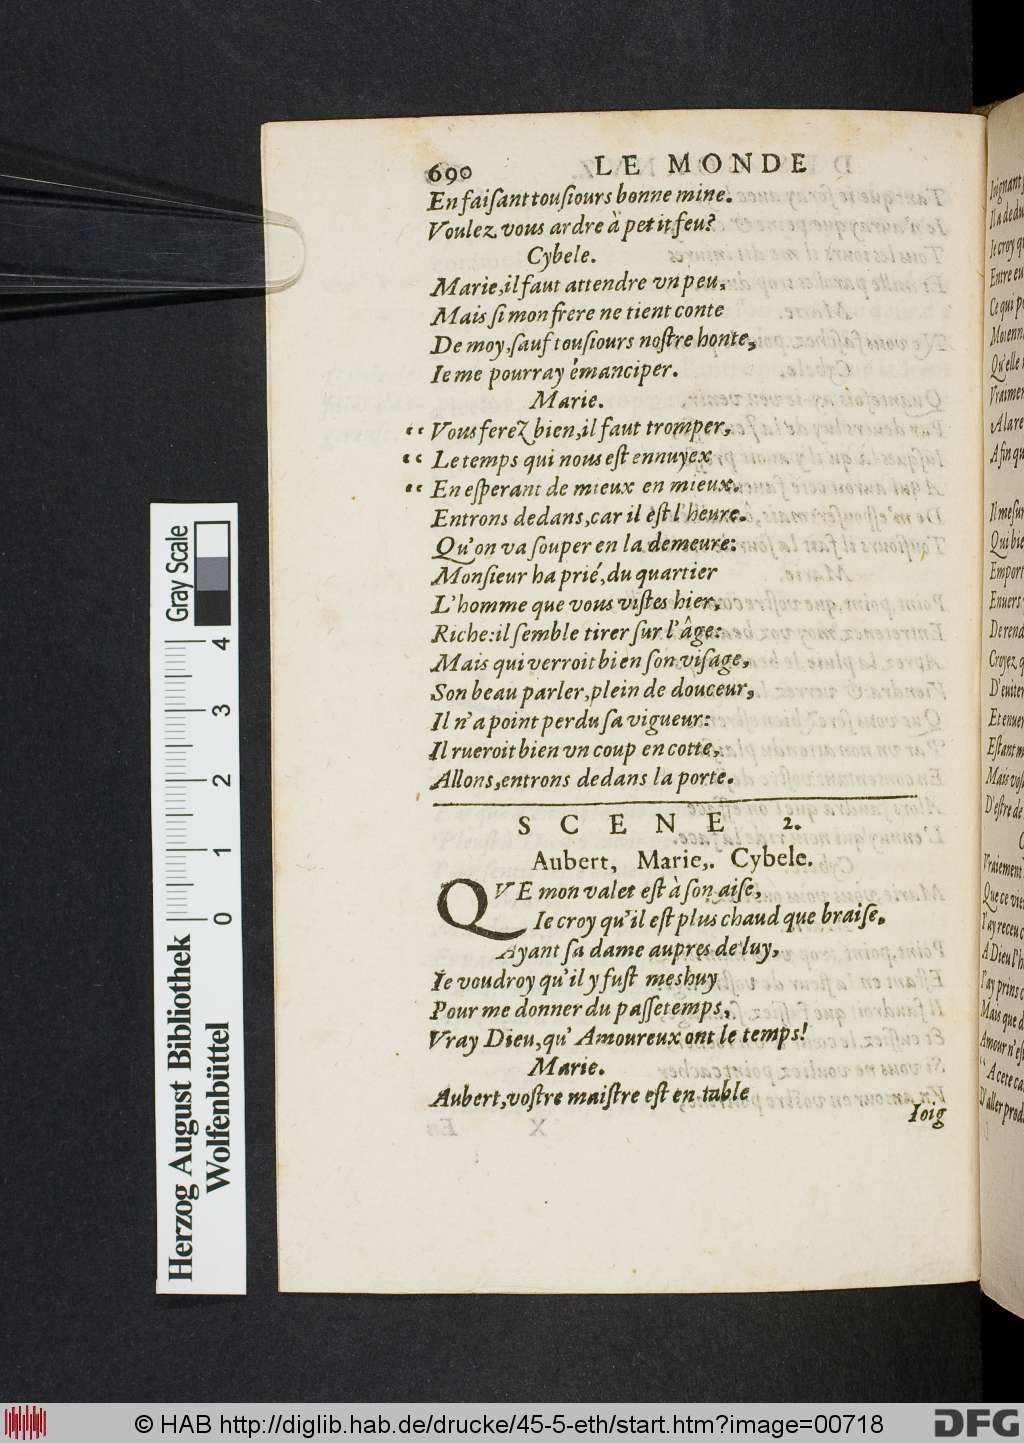 690 LE MONDE
En faiſant touſiours bonne mine.
Voulez vous ardre à petit feu?
Cybele.
Marie, il faut attendre vn peu,
Mais ſi mon frere ne tient conte
De moy, ſauf touſiours noſtre honte,
Ie me pourray émanciper.
Marie.
“ Vous ferez bien, il faut tromper,
“ Le temps qui nous eſt ennuyex
“ En eſperant de mieux en mieux.
Entrons dedans, car il eſt l'heure.
Qu'on va ſouper en la demeure:
Monſieur ha prié, du quartier
L'homme que vous viſtes hier,
Riche: il ſemble tirer ſur l'âge:
Mais qui verroit bien ſon viſage,
Son beau parler, plein de douceur,
Il n'a point perdu ſa vigueur:
Il rueroit bien vn coup en cotte,
Allons, entrons dedans la porte.
SCENE 2.
Aubert, Marie,. Cybele.
QVE mon valet eſt à ſon aiſe,
Ie croy qu'il eſt plus chaud que braiſe.
Ayant ſa dame aupres de luy,
Ie voudroy qu'il y fuſt meshuy
Pour me donner du paſſetemps,
Vray Dieu, qu' Amoureux ont le temps!
Marie.
Aubert, voſtre maiſtre eſt en table
Ioig
Gray Scale
0 1 2 3 4
Herzog August Bibliothek
Wolfenbüttel
© HAB http://diglib.hab.de/drucke/45-5-eth/start.htm?image=00718
DFG